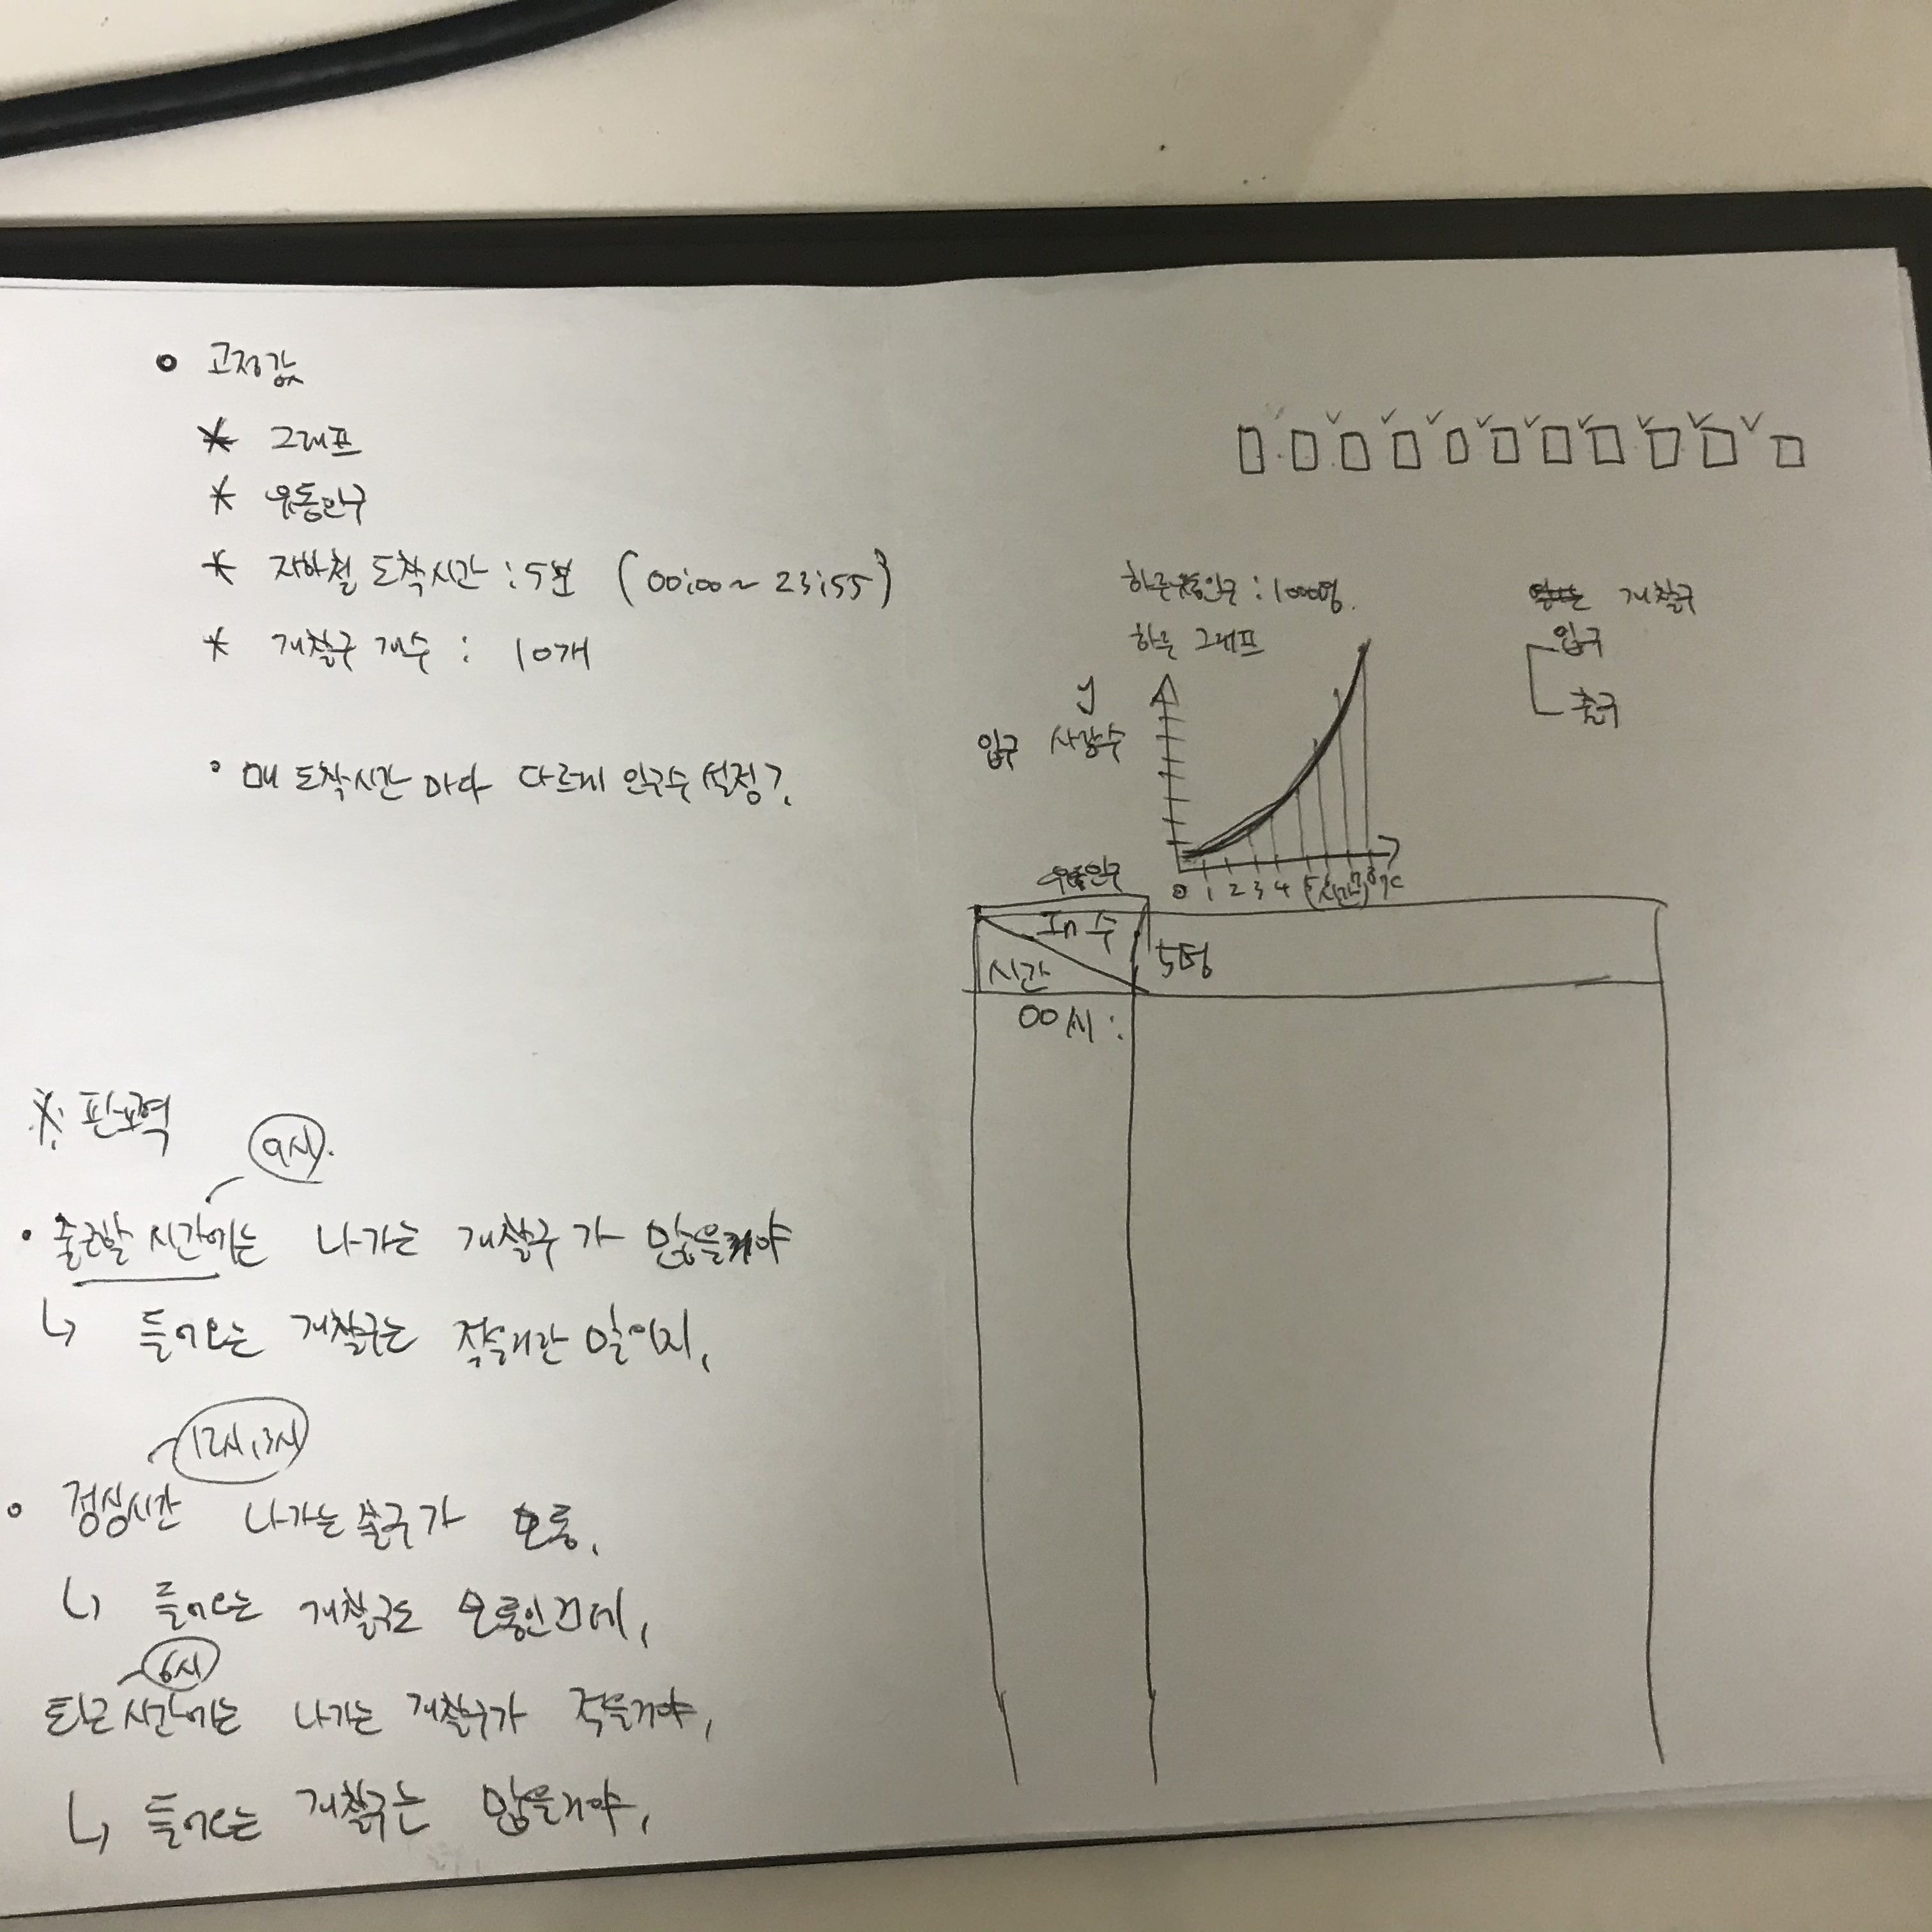 고정값
* 그래프
* 유동인구
* 지하철 도착시간 : 5분 (00:00 ~ 23:55)
* 개찰구 개수 : 10개
매 도착시간 마다 다르게 인구수 설정?
※ 판단력
9시.
출근할 시간에는 나가는 개찰구가 많을거야
↳ 들어오는 개찰구는 적을거란 말이지,
12시, 13시
점심시간 나가는 출구가 보통,
↳ 들어오는 개찰구도 보통인건데,
6시
퇴근 시간에는 나가는 개찰구가 적을거야,
↳ 들어오는 개찰구는 많을거야,
하루유동인구 : 1000명.
하루 그래프
y
입구 사람수
0 1 2 3 4 5 6 7 8 x
(시간)
개찰구
입구
출구
유동인구
In 수
시간
5명
00시 :